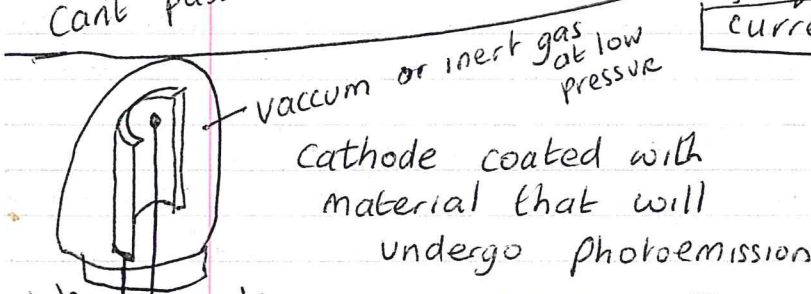 Cant
curre
vaccum or inert gas
at low
pressure
Cathode coated with
material that will
undergo photoemission